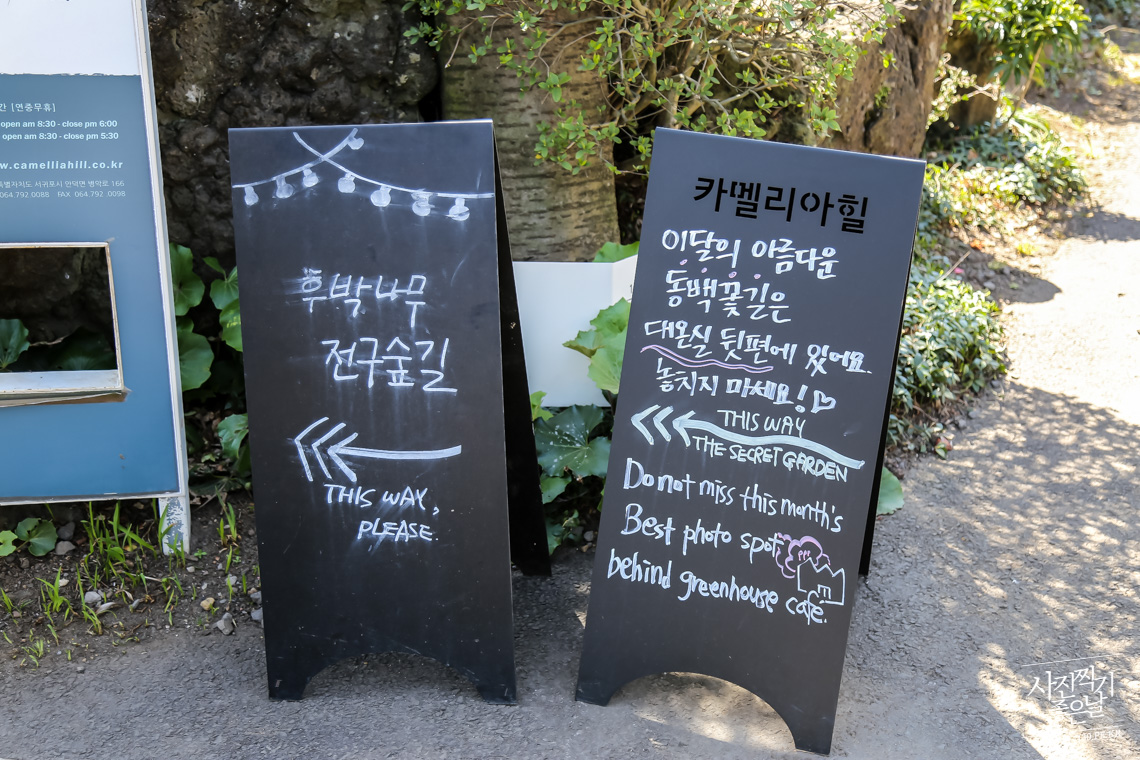 간 [연중무휴]
open am 8:30 - close pm 6:00
open am 8:30 - close pm 5:30
w.camelliahill.co.kr
특별자치도 서귀포시 안덕면 병악로 166
064.792.0088 FAX 064.792.0098
후박나무
전구숲길
THIS WAY,
PLEASE.
카멜리아힐
이달의 아름다운
동백꽃길은
대온실 뒷편에 있어요.
놓치지 마세요!♡
THIS WAY
THE SECRET GARDEN
Do not miss this month's
Best photo spot
behind greenhouse cafe.
사진찍기
좋은날